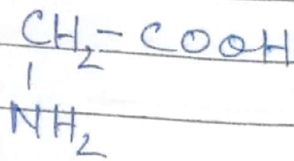 CH₂-COOH
|
NH₂